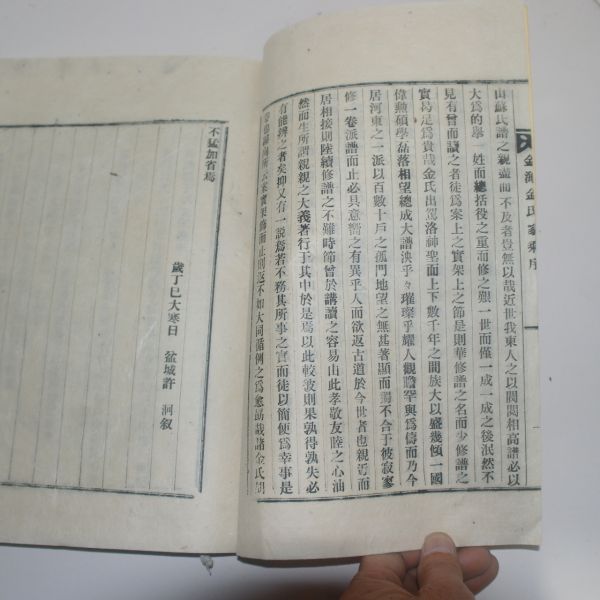 金海金氏家乘序
山蘇氏譜之親盡而不及者豈無以哉近世我東人之以閥閱相高譜必以
大爲的擧一姓而總括役之重而修之艱一世而僅一成一之後泯然不
見有曾而讀之者徒爲案上之實架上之節是則華修譜之名而少修譜之
實曷足爲貴哉金氏出駕洛神聖而上下數千年之間族大以盛幾傾一國
偉勳碩學磊落相望總成大譜泱乎々璀璨乎耀人觀瞻罕與爲儔而乃今
居河東之一派以百數十戶之孤門地望之無甚著顯而獨不合于彼寂寥
修一卷派譜而止必具意嚮之有異乎人而欲返古道於今世者也親焉而
居相接則陸續修譜之不難時節曾於講讀之容易由此孝敬友睦之心油
然而生所謂親親之大義著行于其中於是焉以此較彼則果孰得孰失必
有能辨之者矣抑又有一說焉若不務其所事之實而徒以簡便爲幸事是
架飾而止則返不如大同循例之爲愈勗哉諸金氏
不猛加省焉
歲丁巳大寒日 盆城許 洞叙